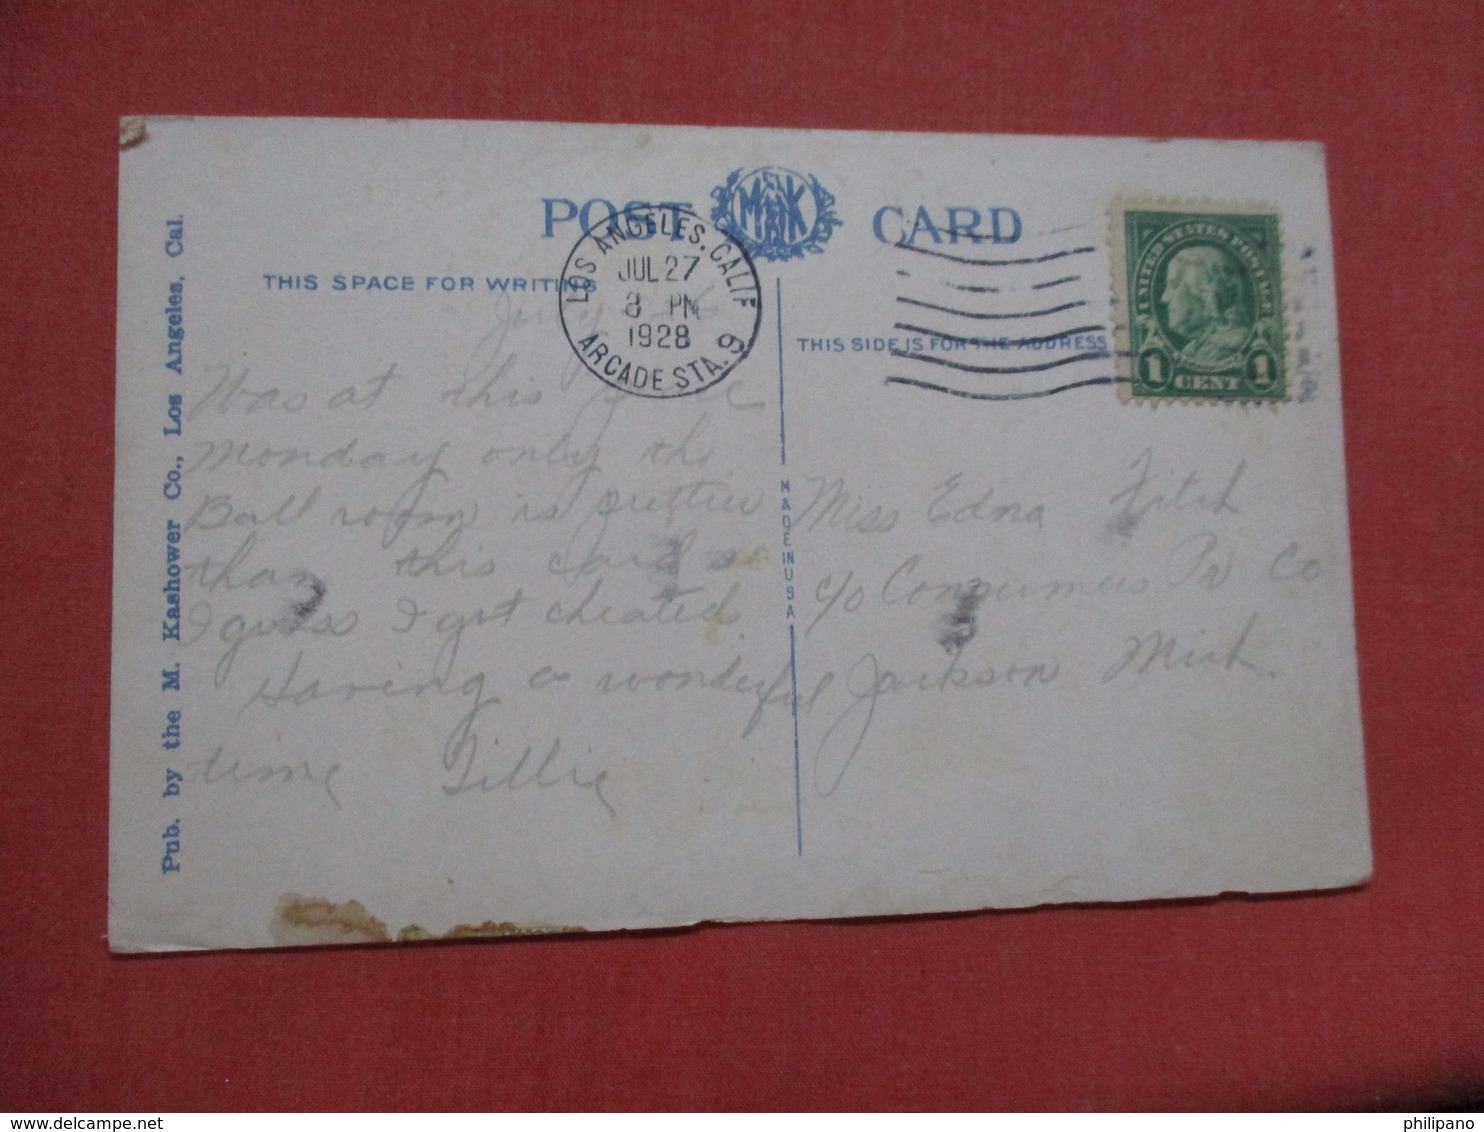 Pub. by the M. Kashower Co., Los Angeles, Cal.
POST CARD
MKK
THIS SPACE FOR WRITING
THIS SIDE IS FOR THE ADDRESS
LOS ANGELES, CALIF
JUL 27
8 PM
1928
ARCADE STA. 6
UNITED STATES POSTAGE
1 CENT 1
MADE IN USA
July
Was at this
Monday only the
Ball room is prettier
than this card so
I guess I got cheated
Having a wonderful
time Tillie
Miss Edna Fitch
c/o Consumers Pr Co
Jackson Mich.
philipano